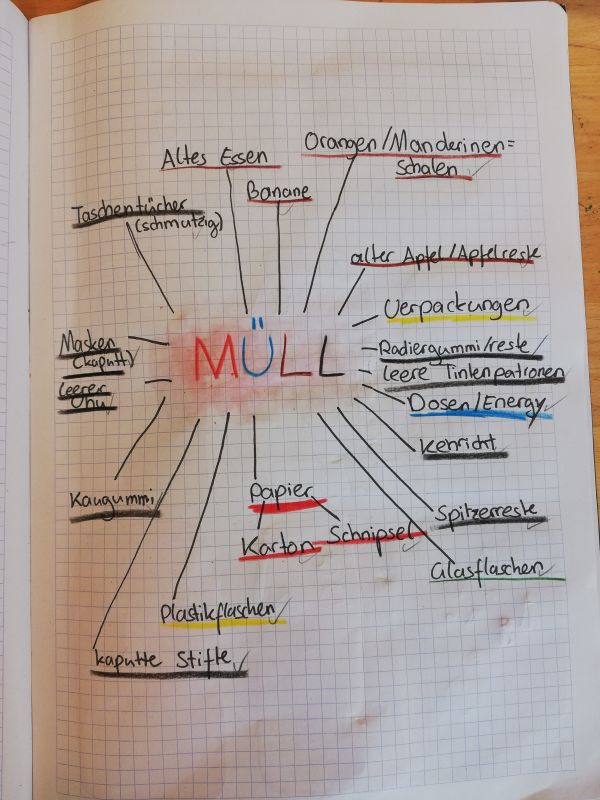 Orangen/Manderinen=
schalen
Altes Essen
Banane
Taschentücher
(schmutzig)
alter Apfel/Apfelreste
Verpackungen
Masken
(kaputt)
Radiergummi/reste
MÜLL
leere Tintenpatronen
leerer
Uhu
Dosen/Energy
Kehricht
Kaugummi
Papier
Spitzerreste
Karton
Schnipsel
Glasflaschen
Plastikflaschen
kaputte Stifte